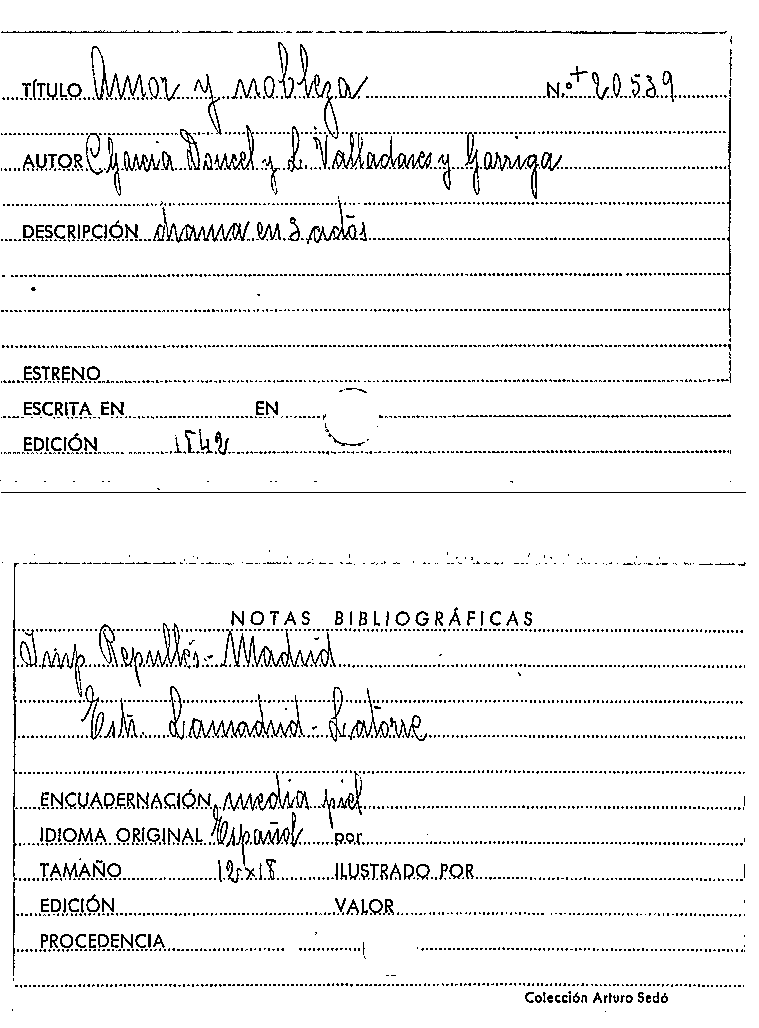 TÍTULO Amor y nobleza N.º + 20539
AUTOR C García Doncel y L. Valladares y Garriga
DESCRIPCIÓN drama en 3 actos
ESTRENO
ESCRITA EN EN
EDICIÓN 1842
NOTAS BIBLIOGRÁFICAS
Imp Repullés - Madrid
Estr. Lamadrid - Latorre
ENCUADERNACIÓN media piel
IDIOMA ORIGINAL Español por
TAMAÑO 12x18 ILUSTRADO POR
EDICIÓN VALOR
PROCEDENCIA
Colección Arturo Sedó